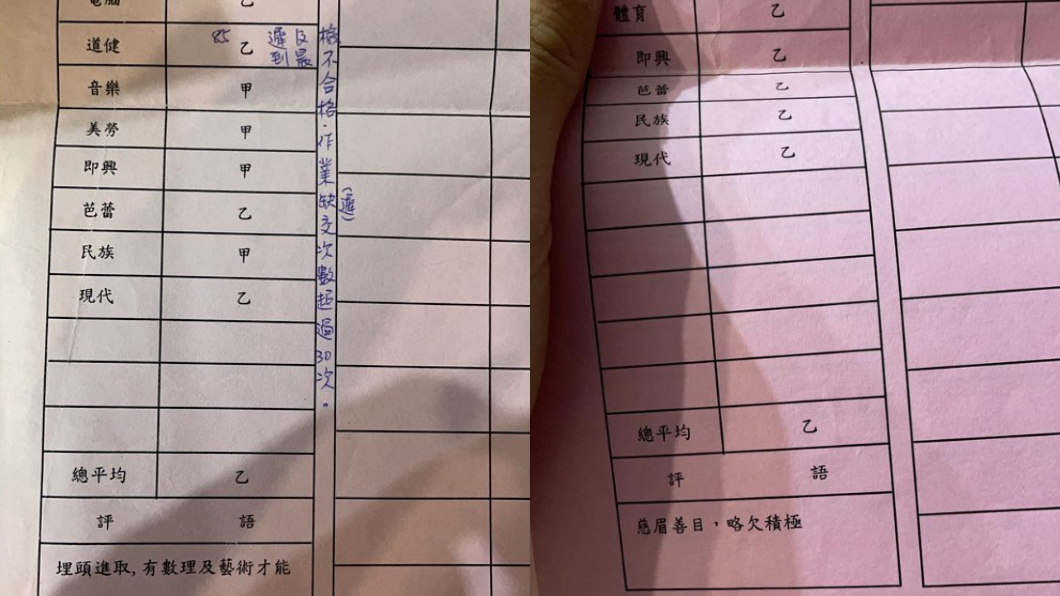 電腦 乙
道健 85 乙 遲到 及晨
音樂 甲
美勞 甲
即興 甲
芭蕾 乙
民族 甲
現代 乙
總平均 乙
評 語
埋頭進取,有數理及藝術才能
檢不合格.作業缺交次數超過30次。
(遲)
體育 乙
即興 乙
芭蕾 乙
民族 乙
現代 乙
總平均 乙
評 語
慈眉善目，略欠積極